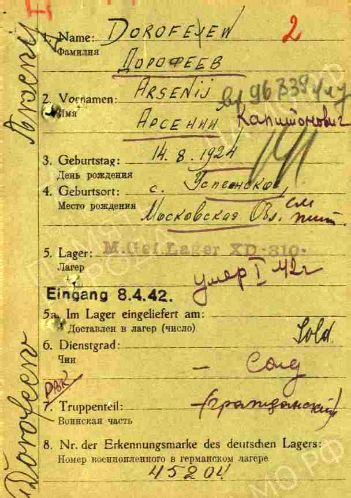 1. Name: DOROFEJEW 2
Фамилия ДОРОФЕЕВ
2. Vornamen: ARSENIJ
Имя АРСЕНИЙ Капитонович
3. Geburtstag: 14.8.1924
День рождения
4. Geburtsort: с. Успенское
Место рождения Московская Обл.
5. Lager: M.Gef.Lager XD-310
Лагерь умер I 42г
Eingang 8.4.42.
5a. Im Lager eingeliefert am:
Доставлен в лагерь (число)
6. Dienstgrad: Sold
Чин – Солд
7. Truppenteil: (Гражданский)
Воинская часть
8. Nr. der Erkennungsmarke des deutschen Lagers:
Номер военнопленного в германском лагере
45204
Dorofeew